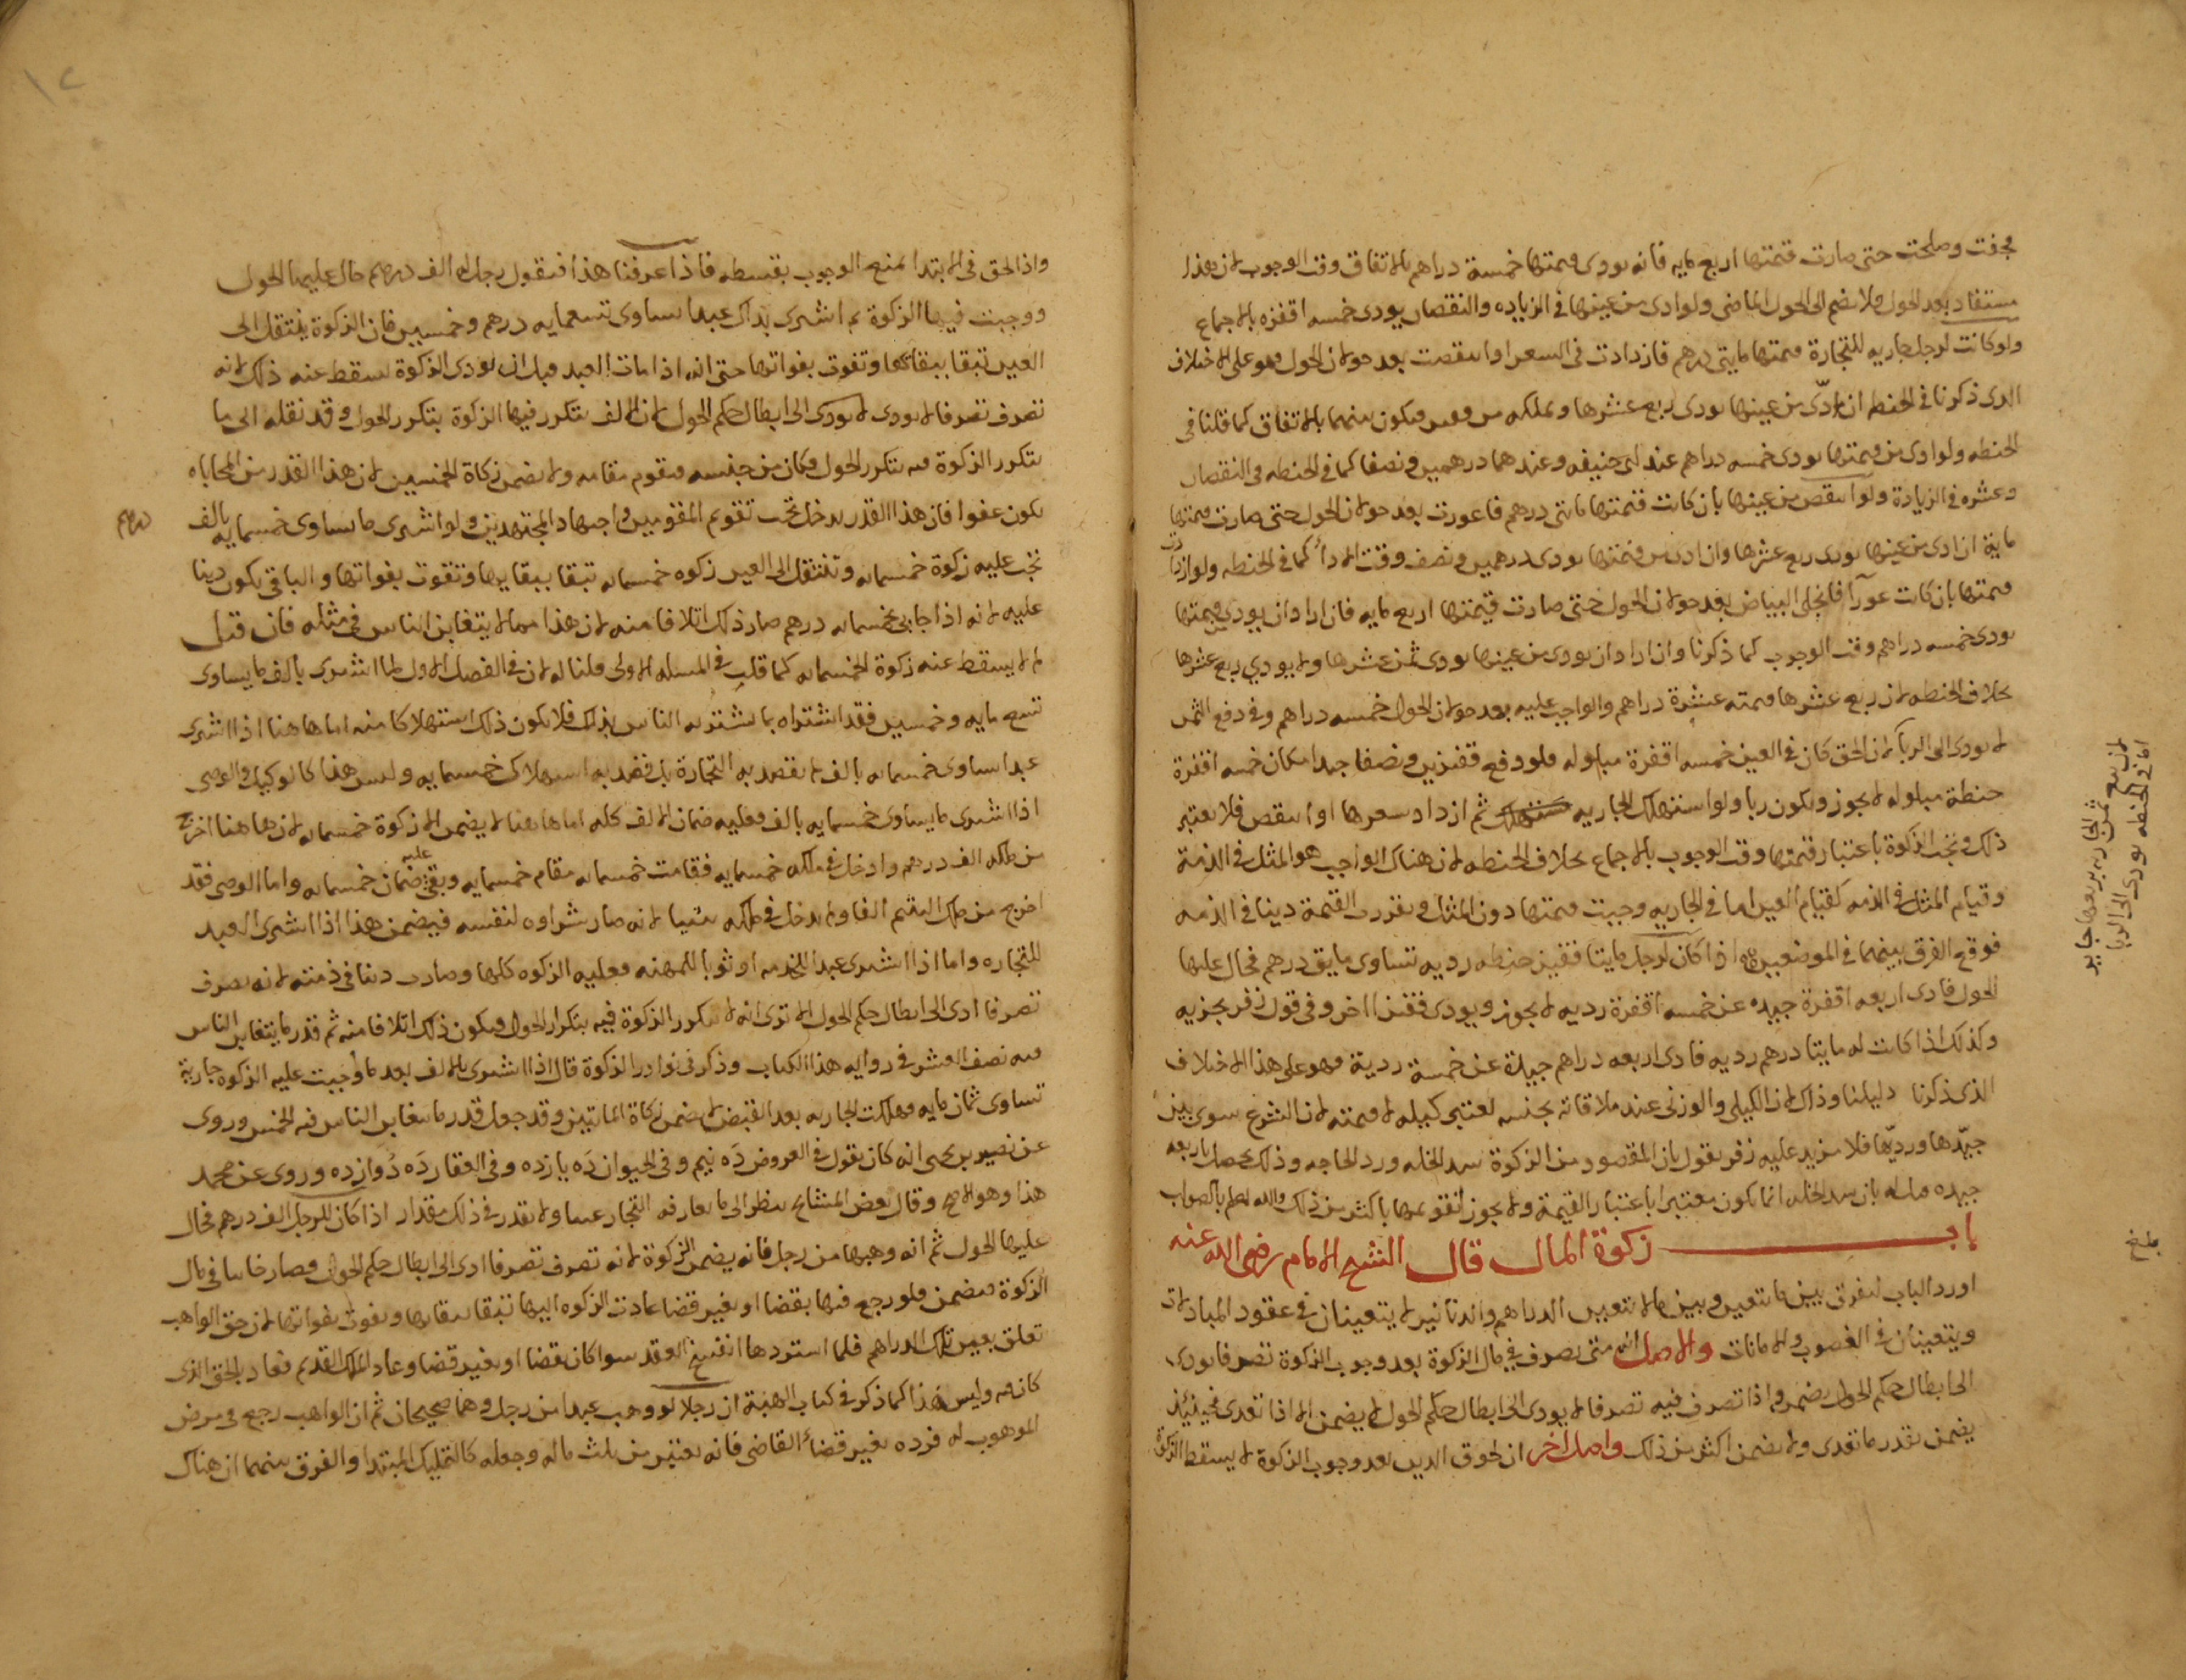 فجفت وصلحت حتى صارت قيمتها اربع مايه فانه يودى قيمتها خمسة دراهم بالاتفاق وقت الوجوب لان هذا
مستفاد بعد الحول فلا يضم الى الحول الماضى ولو ادى من عينها فى الزياده والنقصان يودى خمسه اقفزه بالاجماع
ولو كانت لرجل جاريه للتجارة قيمتها مايتى درهم فازدادت فى السعر او انتقصت بعد حولان الحول فهو على الاختلاف
الدى ذكرنا فى الحنطه ان ادّى من عينها يودى ربع عشرها ويملكه من فقير فيكون بينهما بالاتفاق كما قلنا فى
الحنطه ولو ادى من قيمتها يودى خمسه دراهم عند ابى حنيفه وعندهما درهمين ونصفا كما فى الحنطه فى النقصان
وعشره فى الزيادة ولو انتقص من عينها بان كانت قيمتها مايتى درهم فاعورت بعد حولان الحول حتى صارت قيمتها
ماية ان ادى من عينها يودى ربع عشرها وان ادى من قيمتها يودى درهمين ونصف وقت الادآء كما فى الحنطه ولو ازدادت
قيمتها بان كانت عورآ فانجلى البياض بعد حولان الحول حتى صارت قيمتها اربع مايه فان اراد ان يودي من قيمتها
يودى خمسه دراهم وقت الوجوب كما ذكرنا وان اراد ان يودى من عينها يودى ثمن عشرها ولا يودي ربع عشرها
بخلاف الحنطه لان ربع عشرها قيمته عشرة دراهم والواجب عليه بعد حولان الحول خمسه دراهم وفى دفع الثمن
لا يودى الى الربا لان الحق كان فى العين خمسه اقفزة مبلوله فلو دفع قفيزين ونصفا جيدا مكان خمسه اقفزة
حنطة مبلوله لا يجوز ويكون ربا ولو استهلك الجاريه ثم ازداد سعرها او انتقص فلا يعتبر
ذلك وتجب الزكوة باعتبار قيمتها وقت الوجوب بالاجماع بخلاف الحنطه لان هناك الواجب هو المثل فى الذمة
وقيام المثل فى الذمه كقيام العين اما فى الجاريه وجبت قيمتها دون المثل وتقررت القيمة دينا فى الذمه
فوقع الفرق بينهما فى الموضعين اذا كان لرجل مايتا قفيز حنطه رديه تساوى مايتى درهم فحال عليها
الحول فادى اربعه اقفزة جيده عن خمسه اقفزة رديه لا يجوز ويودى قفيزا اخر وفى قول زفر يجزيه
وكذلك اذا كانت له مايتا درهم رديه فادى اربعه دراهم جيدة عن خمسة ردية فهو على هذا الاختلاف
الذى ذكرنا دليلنا وذاك ان الكيلى والوزنى عند ملاقاته بجنسه يعتبر كيله لا قيمته لان الشرع سوى بين
جيّدها ورديّها فلا مزيد عليه زفر يقول بان المقصود من الزكوة سد الخله ورد الحاجه وذلك يحصل باربعه
جيده قلنا له بان سد الخله انما يكون معتبرا باعتبار القيمة ولا يجوز تقويمها باكثر من ذلك والله اعلم بالصواب
باب زكوة المال قال الشيخ الامام رضى الله عنه
اورد الباب لفرق بين ما يتعين وبين ما لا يتعين الدراهم والدنانير لا يتعينان فى عقود المبادلات
ويتعينان فى الغصوب والامانات والاصل انه متى تصرف فى مال الزكوة بعد وجوب الزكوة تصرفا يودى
الى ابطال حكم الحول يضمن واذا تصرف فيه تصرفا لا يودى الى ابطال حكم الحول لا يضمن الا اذا تعدى فحينئذ
يضمن بقدر ما تعدى ولا يضمن اكثر من ذلك واصل اخر ان لحوق الدين بعد وجوب الزكوة لا يسقط الزكوة
لان بيع ثمن الجاريه بربعها جايز
اما فى الحنطه يودى الى الربا
بلغ
واذ الحق فى الابتدا لمنع الوجوب بقسطه فاذا عرفنا هذا فنقول رجل له الف درهم حال عليها الحول
ووجبت فيها الزكوة ثم اشترى بذلك عبدا يساوى تسعمايه درهم وخمسين فان الزكوة ينتقل الى
العين تبقا ببقائها وتفوت بفواتها حتى انه اذا مات العبد قبل ان يودى الزكوة يسقط عنه ذلك لانه
تصرف تصرفا لا يودى لا يودى الى ابطال حكم الحول لان الالف يتكرر فيها الزكوة بتكرر الحول وقد نقله الى ما
يتكرر الزكوة فيه بتكرر الحول فكان من جنسه فيقوم مقامه ولا يضمن زكاة الخمسين لان هذا القدر من المحاباه
يكون عفوا فان هذا القدر يدخل تحت تقويم المقومين واجتهاد المجتهدين ولو اشترى ما يساوى خمسمايه بالف
درهم
تجب عليه زكوة خمسمايه وتنتقل الى العين زكوه خمسمايه تبقا ببقايها وتفوت بفواتها والباقى يكون دينا
عليه لانه اذا حابى بخمسمايه درهم صار ذلك اتلافا منه لان هذا مما لا يتغابن الناس فى مثله فان قيل
لم لا يسقط عنه زكوة الخمسمايه كما قلت فى المسله الاولى قلنا له لان فى الفصل الاول لما اشترى بالف ما يساوى
تسع مايه وخمسين فقد اشتراه بما يشتريه الناس بذلك فلا يكون ذلك استهلاكا منه اما هاهنا اذا اشترى
عبدا يساوى خمسمايه بالف لم يقصد به التجارة بل قصد به استهلاك خمسمايه وليس هذا كالوكيل والوصى
اذا اشترى ما يساوى خمسمايه بالف فعليه ضمان الالف كله اما هاهنا لا يضمن الا زكوة خمسمايه لان هاهنا اخرج
من ملكه الف درهم وادخل فى ملكه خمسمايه فقامت خمسمايه مقام خمسمايه وبقى عليه ضمان خمسمايه واما الوصى فقد
اخرج من ملك اليتيم الفا ولم يدخل فى ملكه شيا لانه صار شراوه لنفسه فيضمن هذا اذا اشترى العبد
للتجاره واما اذا اشترى عبدا للخدمه او ثوبا للمهنه فعليه الزكوه كلها وصارت دينا فى ذمته لانه تصرف
تصرفا ادى الى ابطال حكم الحول الا ترى انه لا يتكرر الزكوة فيه بتكرار الحول فيكون ذلك اتلافا منه ثم قدر ما يتغابن الناس
فيه نصف العشر فى روايه هذا الكتاب وذكر فى نوادر الزكوة قال اذا اشترى بالالف بعد ما وجبت عليه الزكوه جارية
تساوى ثمان مايه فهلكت الجاريه بعد القبض لم يضمن زكاة المايتين وقد جعل قدر ما يتغابن الناس فيه الخمس وروى
عن نصير بن يحيى انه كان يقول فى العروض دَه نيم وفى الحيوان دَه يازده وفى العقار دَه دُوازده وروى عن محمد
هذا وهو الاصح وقال بعض المشايخ ينظر الى ما تعارفه التجار عندها ولا يقدر فى ذلك مقدار اذا كان للرجل الف درهم فحال
عليها الحول ثم انه وهبها من رجل فانه يضمن الزكوة لانه تصرف تصرفا ادى الى ابطال حكم الحول وصار خاينا فى مال
الزكوة فيضمن فلو رجع فيها بقضا او بغير قضا عادت الزكوه اليها تبقا ببقايها وتفوت بفواتها لان حق الواهب
تعلق بعين تلك الدراهم فلما استردها انفسخ العقد سوا كان بقضا او بغير قضا وعاد الملك القديم فعاد الحق الذى
كان فيه وليس هذا كما ذكر فى كتاب الهبة ان رجلا لو وهب عبدا من رجل وهما صحيحان ثم ان الواهب رجع فى مرض
الموهوب له فرده بغير قضاء القاضى فانه يعتبر من ثلث ماله وجعله كالتمليك المبتدا والفرق بينهما ان هناك